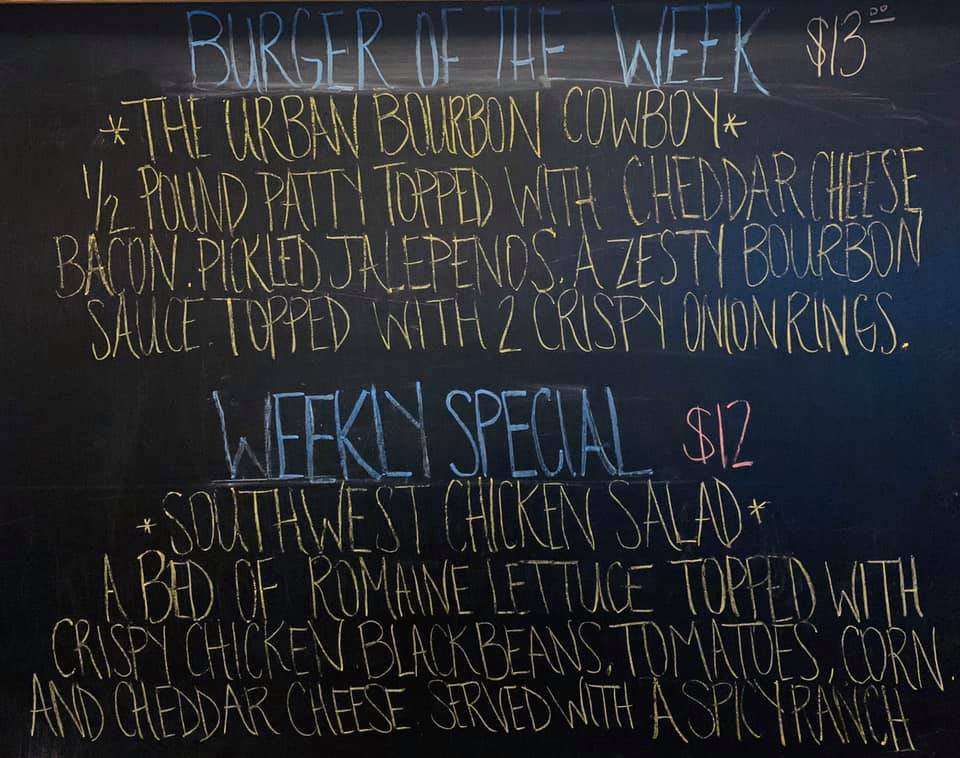 BURGER OF THE WEEK $13.00
*THE URBAN BOURBON COWBOY*
1/2 POUND PATTY TOPPED WITH CHEDDAR CHEESE
BACON. PICKLED JALEPENOS. A ZESTY BOURBON
SAUCE. TOPPED WITH 2 CRISPY ONION RINGS.
WEEKLY SPECIAL $12
*SOUTHWEST CHICKEN SALAD*
A BED OF ROMAINE LETTUCE TOPPED WITH
CRISPY CHICKEN BLACK BEANS, TOMATOES, CORN.
AND CHEDDAR CHEESE. SERVED WITH A SPICY RANCH